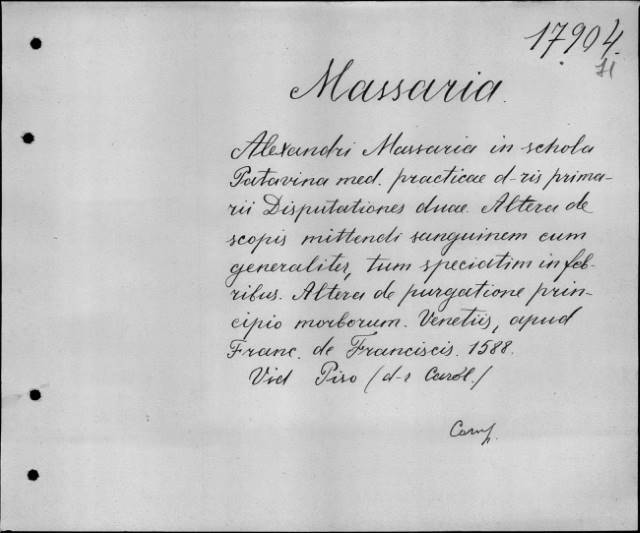 17904.
II
Massaria.
Alexandri Massaria in schola
Patavina med. practicae d-ris prima-
rii Disputationes duae. Altera de
scopis mittendi sanguinem cum
generaliter, tum speciatim in feb-
ribus. Altera de purgatione prin-
cipio morborum. Venetiis, apud
Franc. de Franciscis. 1588.
Vid Piso (d-r Carol.)